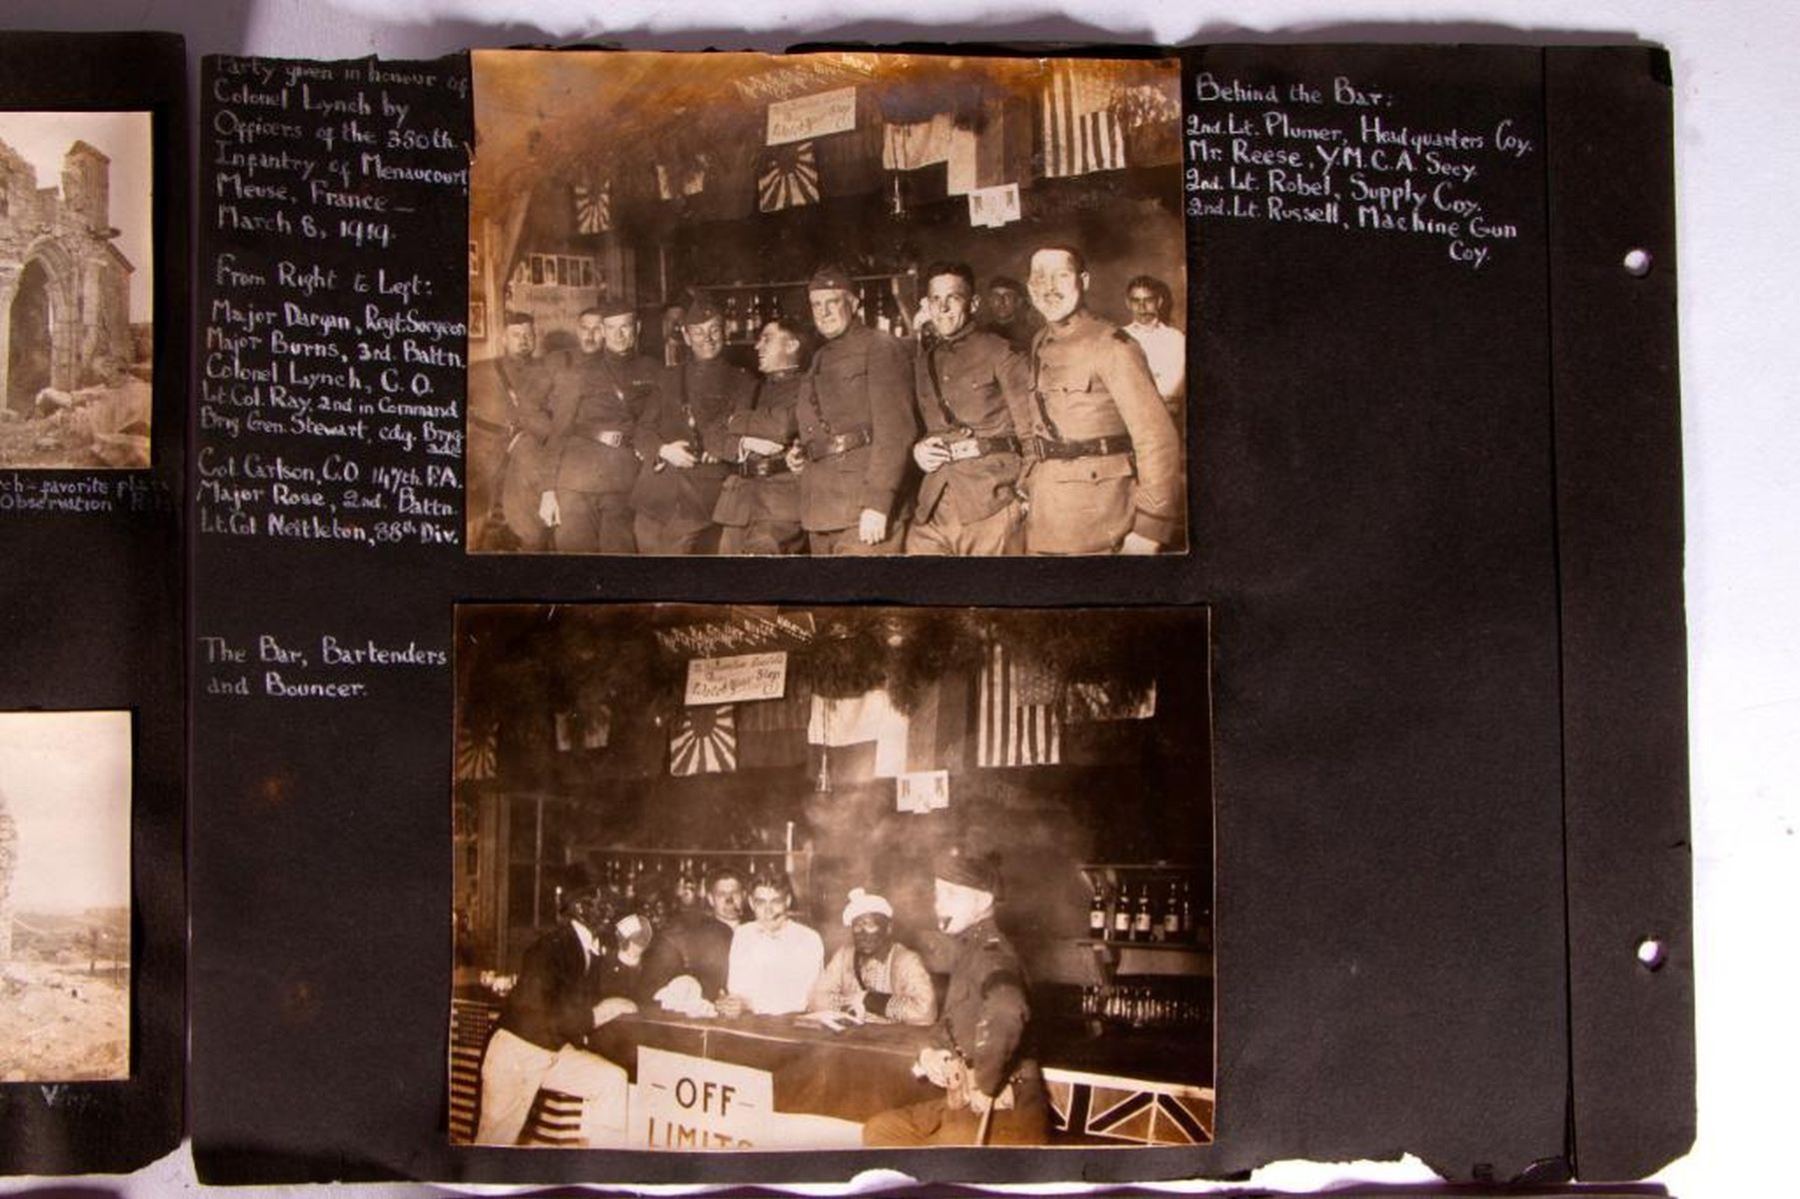 Party given in honour of
Colonel Lynch by
Officers of the 350th
Infantry of Menaucourt
Meuse, France —
March 8, 1919.
From Right to Left:
Major Daryan, Regt. Surgeon
Major Burns, 3rd. Battn.
Colonel Lynch, C. O.
Lt. Col. Ray, 2nd in Command
Brig Gen. Stewart, cdg. Brig
Col. Carlson, C.O 147th. F.A.
Major Rose, 2nd. Battn.
Lt. Col Neitleton, 88th Div.
Behind the Bar:
2nd. Lt. Plumer, Headquarters Coy.
Mr. Reese, Y.M.C.A. Secy
2nd. Lt. Robel, Supply Coy.
2nd. Lt. Russell, Machine Gun
Coy.
The Bar, Bartenders
and Bouncer.
Watch Your Step
- OFF -
LIMITS
ch - favorite
Observation